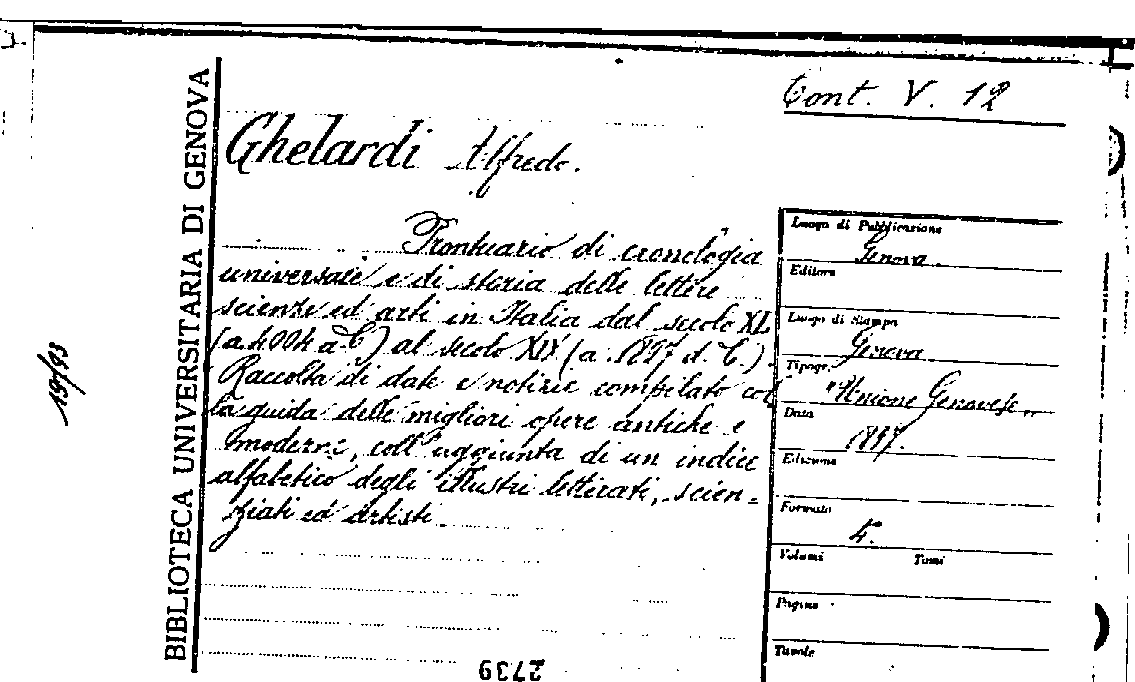 Cont. V. 12
BIBLIOTECA UNIVERSITARIA DI GENOVA
Ghelardi Alfredo.
Prontuario di cronologia
universale e di storia delle lettere
scienze ed arti in Italia dal secolo XL
(a. 4004 a. C.) al secolo XIX (a. 1897 d. C.).
Raccolta di date e notizie compilato col
la guida delle migliori opere antiche e
moderne, coll'aggiunta di un indice
alfabetico degli illustri letterati, scien=
ziati ed artisti.
Luogo di Pubblicazione
Genova.
Editore
Luogo di Stampa
Genova.
Tipogr.
"Unione Genovese"
Data
1897.
Edizione
Formato
4.
Volumi Tomi
Pagine
Tavole
19/93
2739